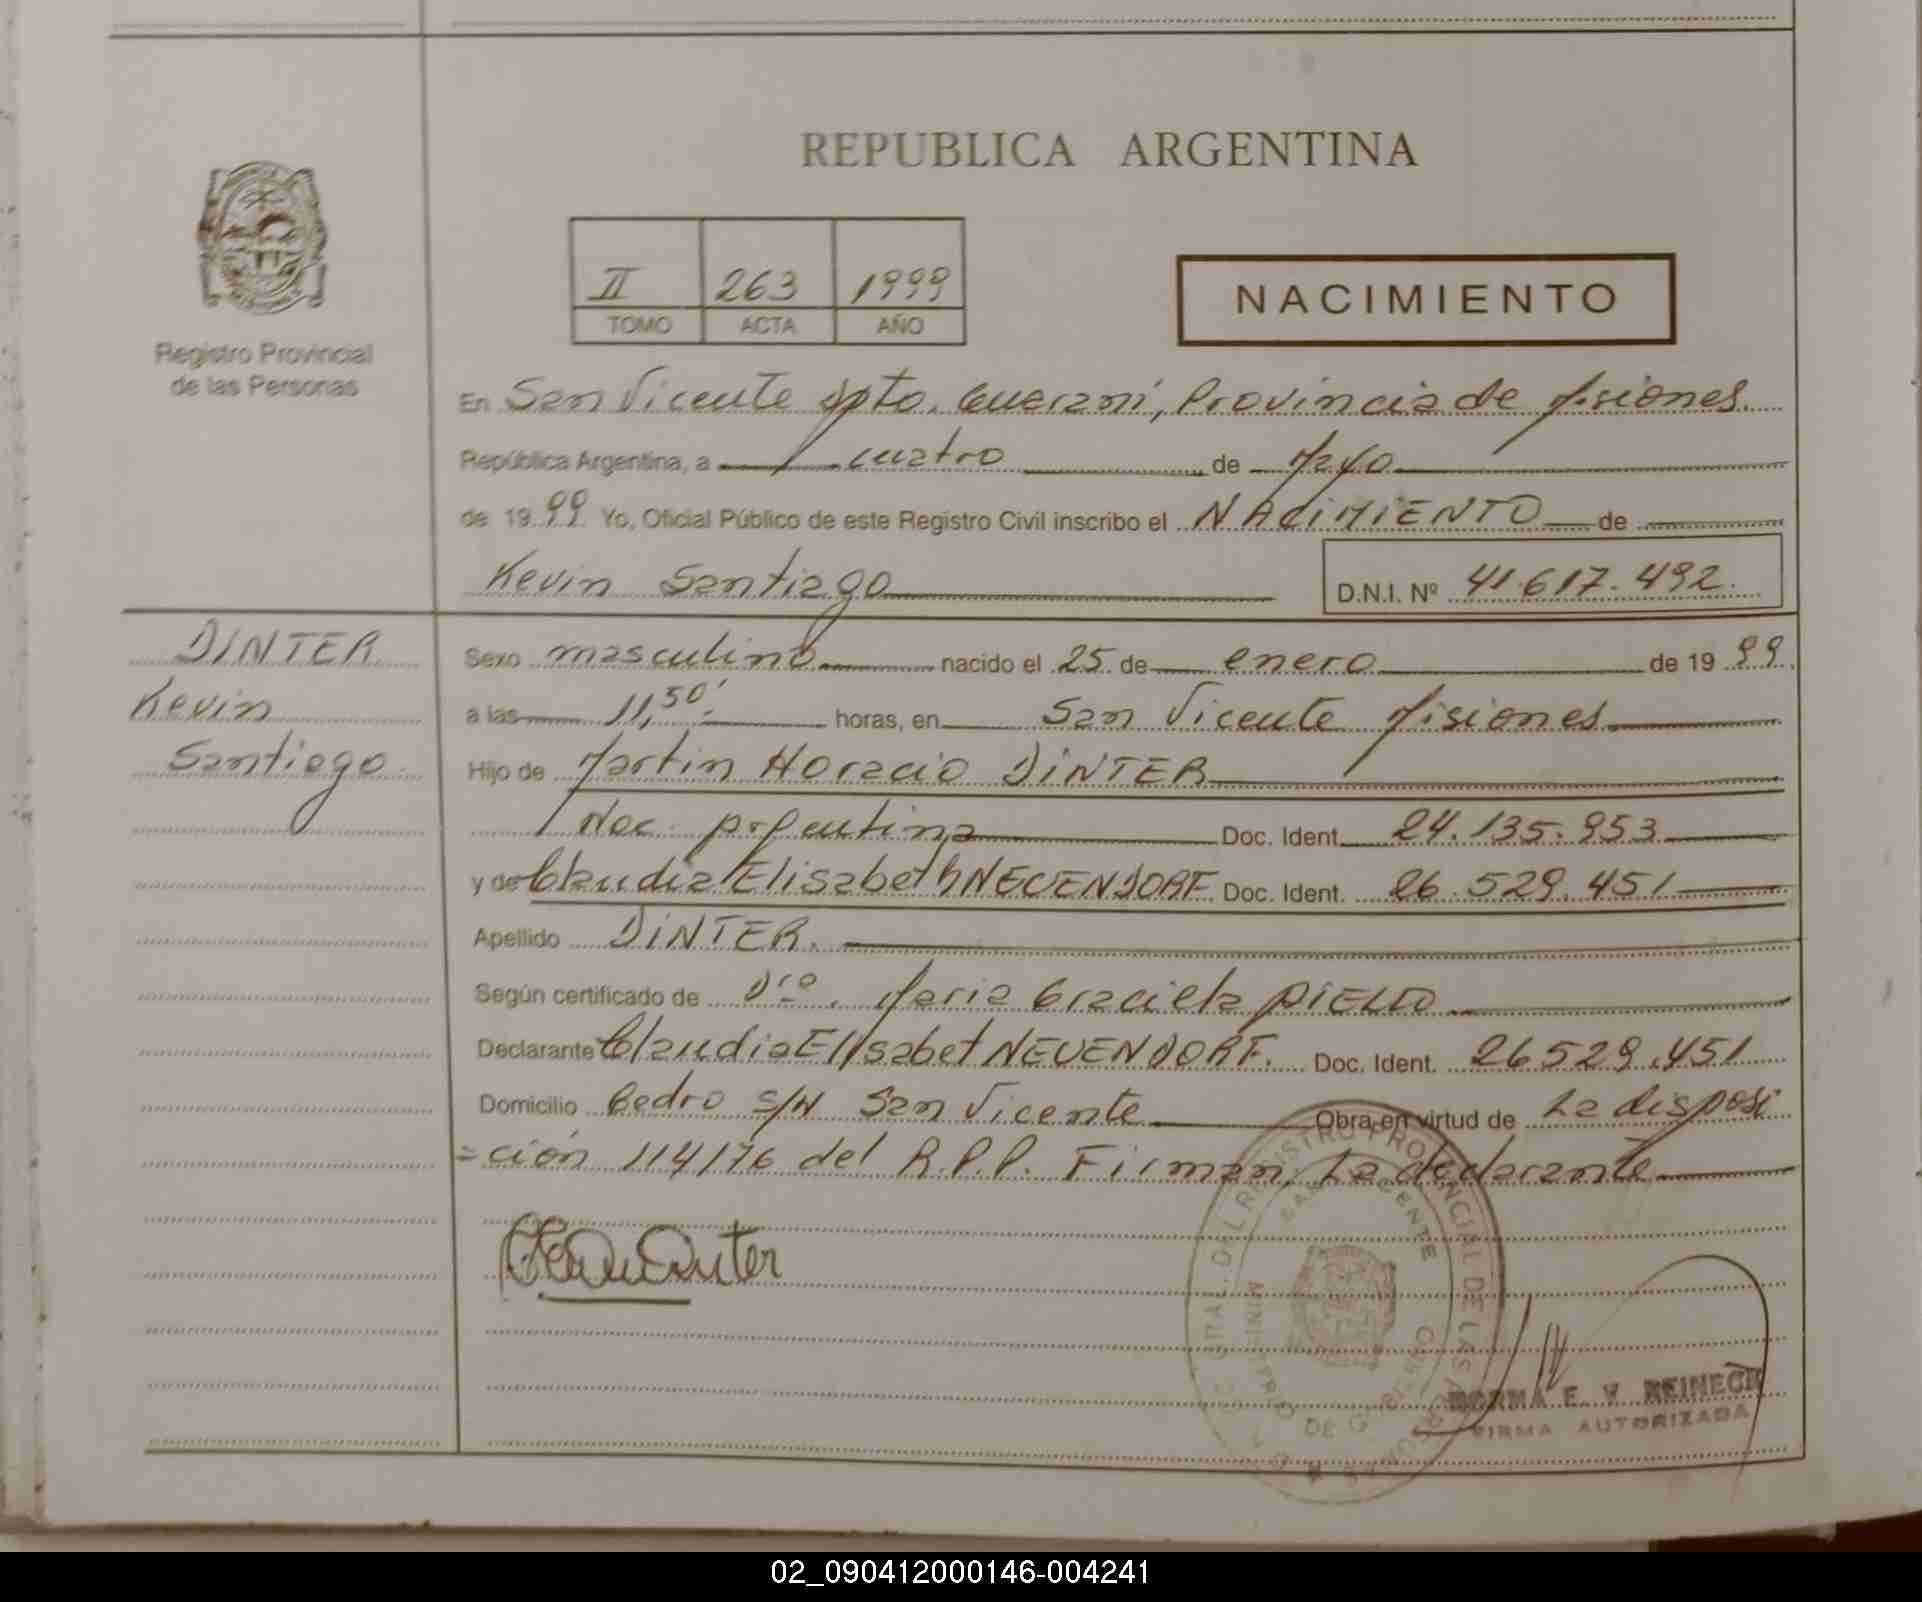 REPUBLICA ARGENTINA
II 263 1999
TOMO ACTA AÑO
NACIMIENTO
Registro Provincial
de las Personas
En San Vicente Dpto. Guaraní, Provincia de Misiones.
República Argentina, a cuatro de Mayo
de 19 99 Yo, Oficial Público de este Registro Civil inscribo el NACIMIENTO de
Kevin Santiago D.N.I. Nº 41.617.492.
DINTER
Kevin
Santiago
Sexo masculino nacido el 25 de enero de 19 99
a las 11,50'. horas, en San Vicente Misiones
Hijo de Martin Horacio DINTER
Nac. Argentina Doc. Ident. 24.135.953
y de Claudia Elisabeth NEUENDORF Doc. Ident. 26.529.451
Apellido DINTER.
Según certificado de Dra. Maria Graciela
Declarante Claudia Elisabet NEUENDORF. Doc. Ident. 26529.451
Domicilio Cedro S/N San Vicente Obra en virtud de La disposi
=ción 114/76 del R.P.P. Firman, La declarante
DEL REGISTRO PROVINCIAL DE LAS PERSONAS
SAN VICENTE
MINISTERIO DE GOBIERNO
NORMA E. V. REINECK
FIRMA AUTORIZADA
02_090412000146-004241